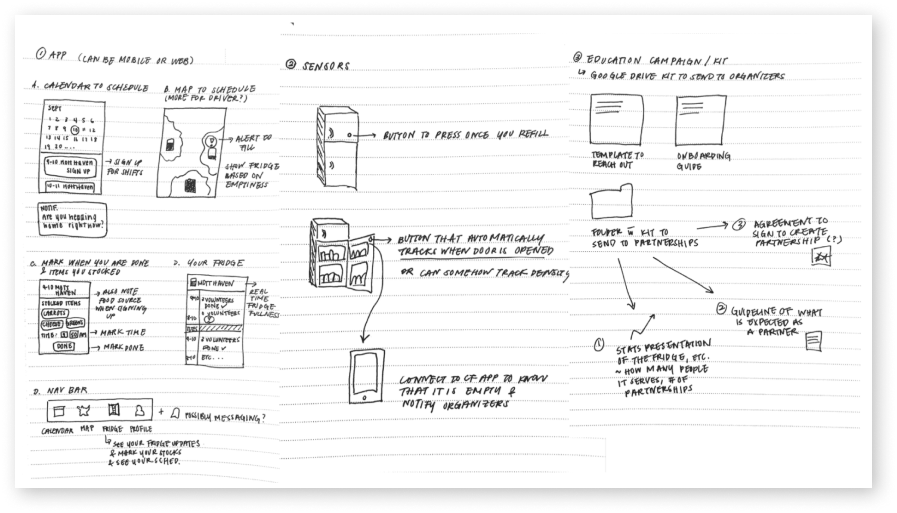 ① APP (CAN BE MOBILE OR WEB)
A. CALENDAR TO SCHEDULE
SEPT
1 2 3 4 5 6
7 8 9 10 11 12
13 14 15 16 17 18
19 20 ...
9-10 MOTT HAVEN
SIGN UP
10-11 MOTT HAVEN
→ SIGN UP
FOR SHIFTS
NOTIF.
Are you heading
home right now?
B. MAP TO SCHEDULE
(MORE FOR DRIVER?)
→ ALERT TO
FILL
SHOW FRIDGE
BASED ON
EMPTINESS
C. MARK WHEN YOU ARE DONE
& ITEMS YOU STOCKED
9-10 MOTT
HAVEN
STOCKED ITEMS
CARROTS
CHEESE
TIME:
DONE
→ ALSO NOTE
FOOD SOURCE
WHEN SIGNING
UP
→ MARK TIME
→ MARK DONE
2. YOUR FRIDGE
MOTT HAVEN
2 VOLUNTEERS
DONE ✓
2 VOLUNTEERS
2 VOLUNTEERS
DONE ✓
ETC...
→ REAL
TIME
FRIDGE
FULLNESS
D. NAV BAR
+ POSSIBLY MESSAGING?
CALENDAR MAP FRIDGE PROFILE
↳ SEE YOUR FRIDGE UPDATES
& MARK YOUR STOCKS
& SEE YOUR SCHED.
② SENSORS
→ BUTTON TO PRESS ONCE YOU REFILL
→ BUTTON THAT AUTOMATICALLY
TRACKS WHEN DOOR IS OPENED
OR CAN SOMEHOW TRACK DENSITY
CONNECT TO CF APP TO KNOW
THAT IT IS EMPTY &
NOTIFY ORGANIZERS
③ EDUCATION CAMPAIGN / KIT
↳ GOOGLE DRIVE KIT TO SEND TO ORGANIZERS
TEMPLATE TO
REACH OUT
ONBOARDING
GUIDE
FOLDER w KIT TO
SEND TO PARTNERSHIPS
→ ③ AGREEMENT TO
SIGN TO CREATE
PARTNERSHIP (?)
② GUIDELINE OF WHAT
IS EXPECTED AS
A PARTNER
① STATS PRESENTATION
OF THE FRIDGE, ETC.
~ HOW MANY PEOPLE
IT SERVES, # OF
PARTNERSHIPS